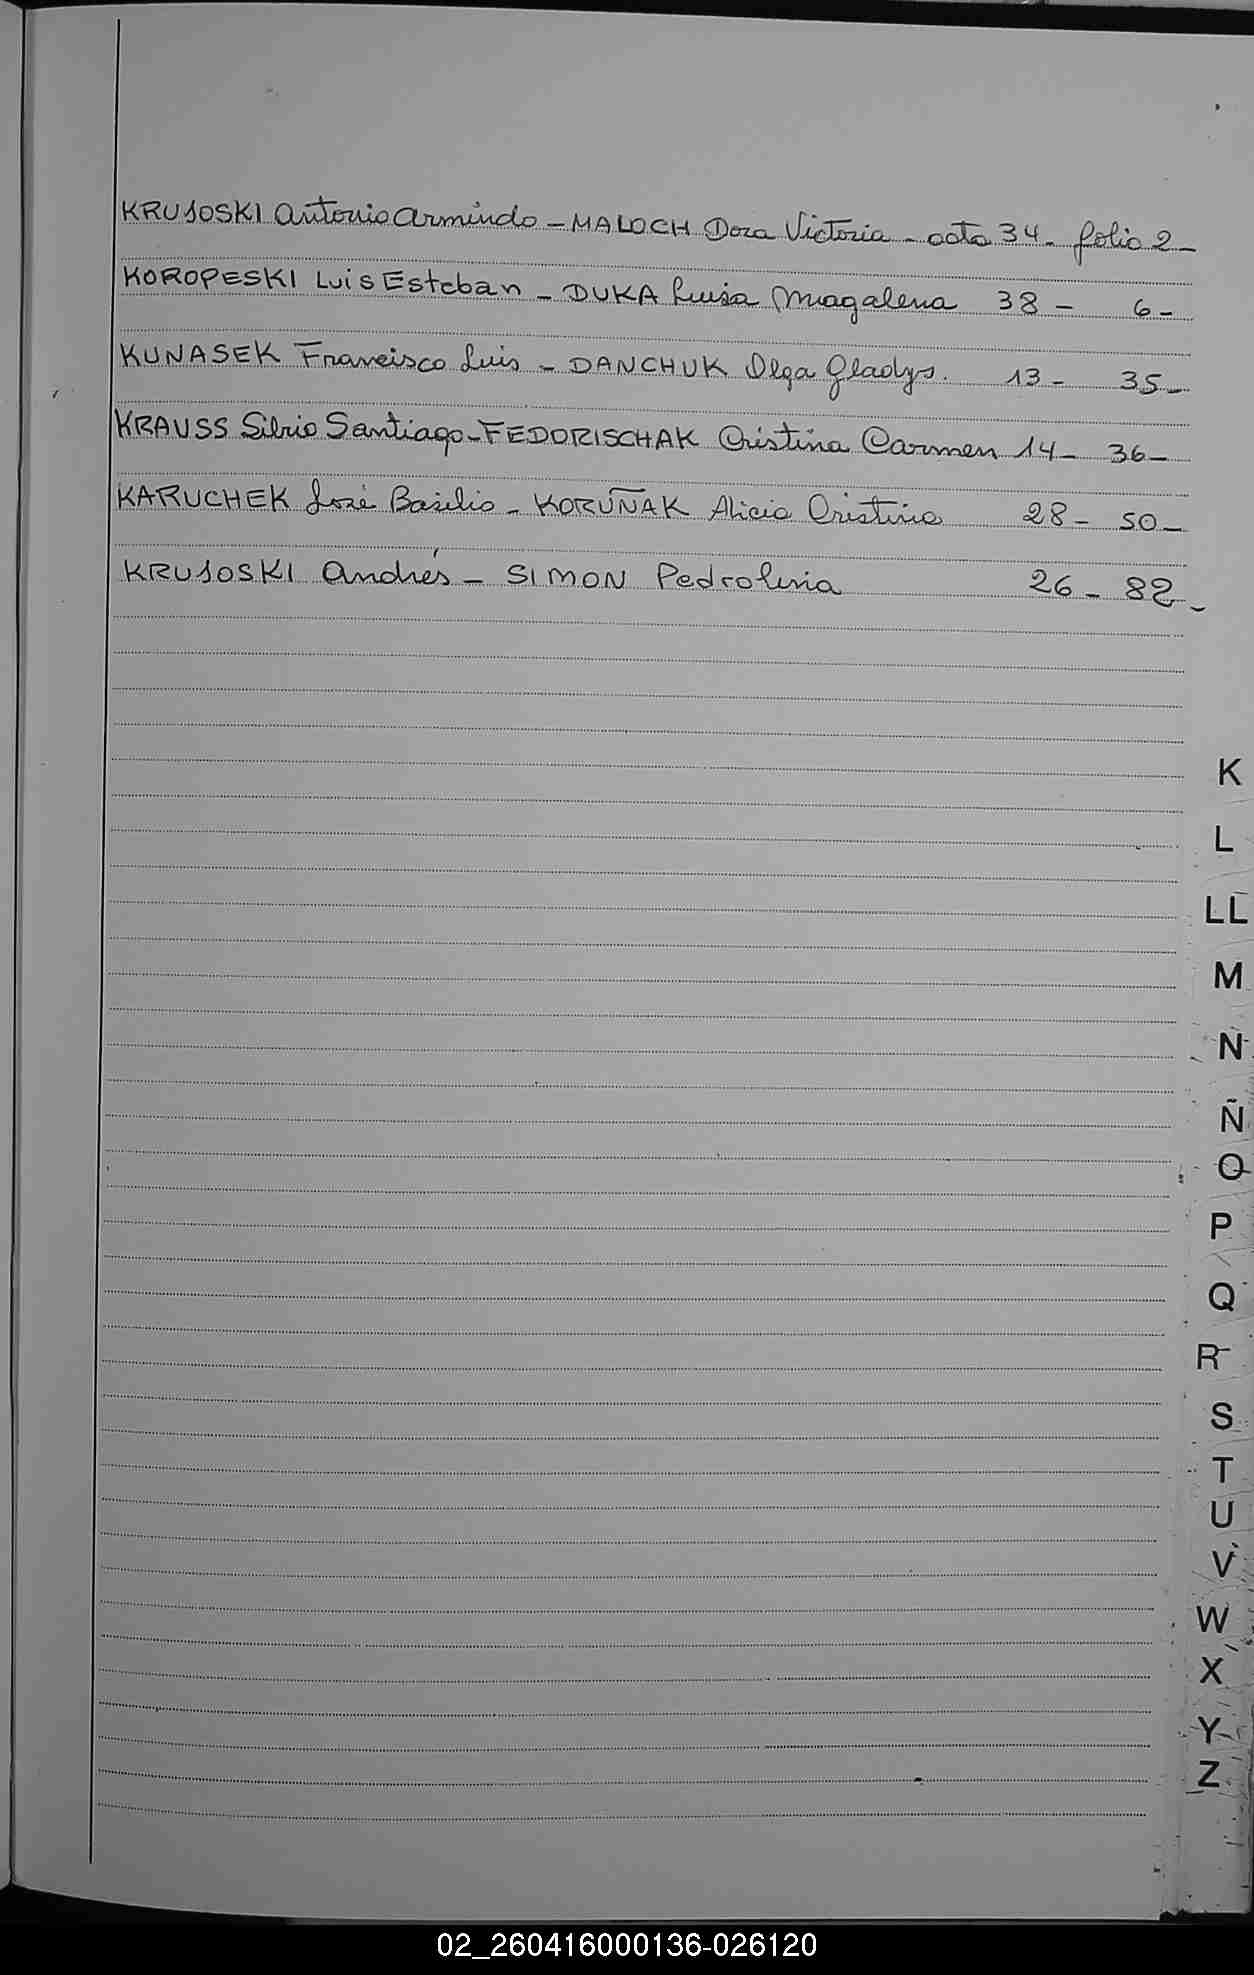 KRUJOSKI Antonio Armindo - MALOCH Dora Victoria - acta 34 - folio 2 -
KOROPESKI Luis Esteban - DUKA Luisa Magalena 38 - 6 -
KUNASEK Francisco Luis - DANCHUK Olga Gladys. 13 - 35 -
KRAUSS Silvio Santiago - FEDORISCHAK Cristina Carmen 14 - 36 -
KARUCHEK José Basilio - KORUÑAK Alicia Cristina 28 - 50 -
KRUJOSKI Andrés - SIMON Pedrolina 26 - 82 -
K
L
LL
M
N
Ñ
O
P
Q
R
S
T
U
V
W
X
Y
Z
02_260416000136-026120